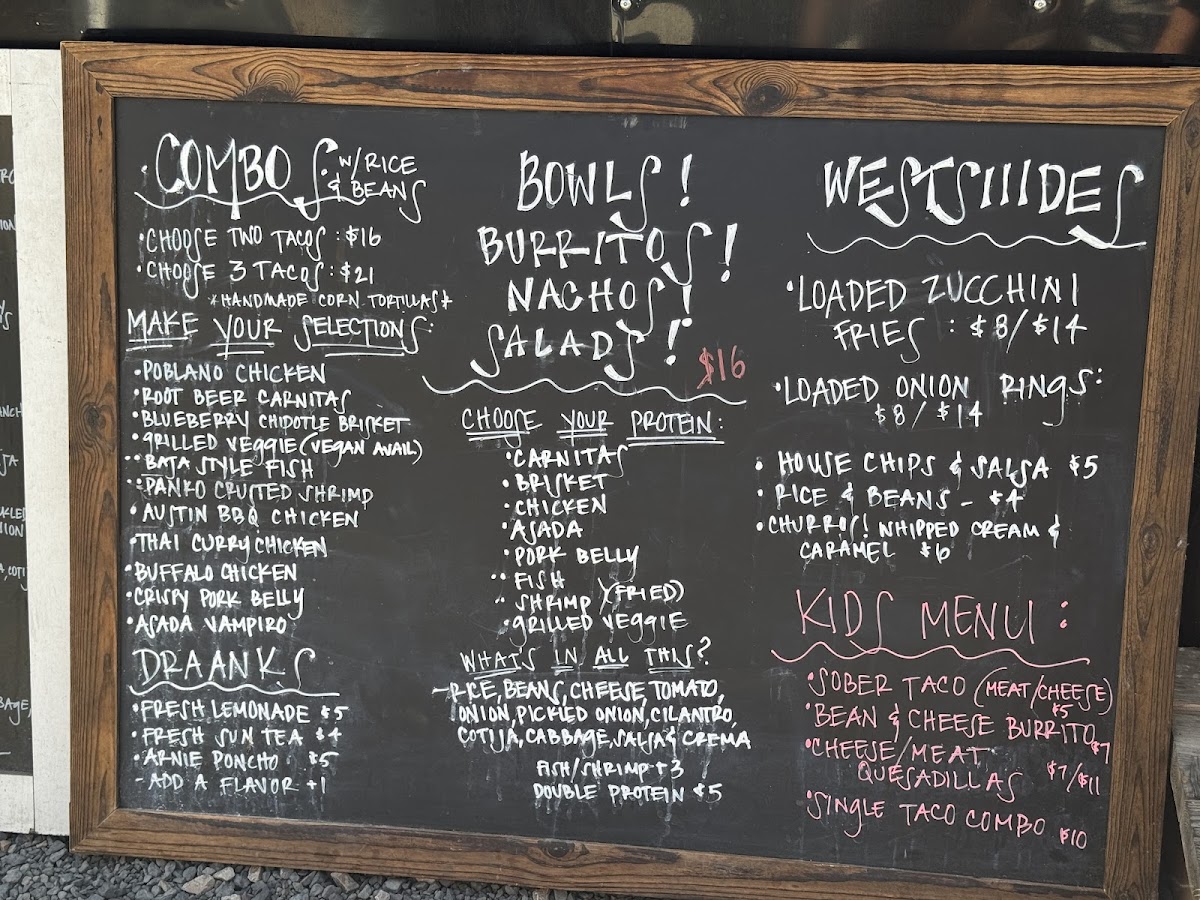 COMBOS. W/ RICE
& BEANS
• CHOOSE TWO TACOS: $16
• CHOOSE 3 TACOS: $21
*HANDMADE CORN TORTILLAS*
MAKE YOUR SELECTIONS:
• POBLANO CHICKEN
• ROOT BEER CARNITAS
• BLUEBERRY CHIPOTLE BRISKET
• GRILLED VEGGIE (VEGAN AVAIL)
•• BAJA STYLE FISH
•• PANKO CRUSTED SHRIMP
• AUSTIN BBQ CHICKEN
• THAI CURRY CHICKEN
• BUFFALO CHICKEN
• CRISPY PORK BELLY
• ASADA VAMPIRO
DRAANKS
• FRESH LEMONADE $5
• FRESH SUN TEA $4
• ARNIE PONCHO $5
- ADD A FLAVOR +1
BOWLS!
BURRITOS!
NACHOS!
SALADS!
$16
CHOOSE YOUR PROTEIN:
• CARNITAS
• BRISKET
• CHICKEN
• ASADA
• PORK BELLY
•• FISH
•• SHRIMP (FRIED)
• GRILLED VEGGIE
WHAT'S IN ALL THIS?
~RICE, BEANS, CHEESE, TOMATO,
ONION, PICKLED ONION, CILANTRO,
COTIJA, CABBAGE, SALSA & CREMA
FISH/SHRIMP +3
DOUBLE PROTEIN $5
WESTSIIIDES
• LOADED ZUCCHINI
FRIES: $8/$14
• LOADED ONION RINGS:
$8/$14
• HOUSE CHIPS & SALSA $5
• RICE & BEANS - $4
• CHURROS! WHIPPED CREAM &
CARAMEL $6
KIDS MENU:
• SOBER TACO (MEAT/CHEESE)
$5
• BEAN & CHEESE BURRITO
$7
• CHEESE/MEAT
QUESADILLAS $7/$11
• SINGLE TACO COMBO $10